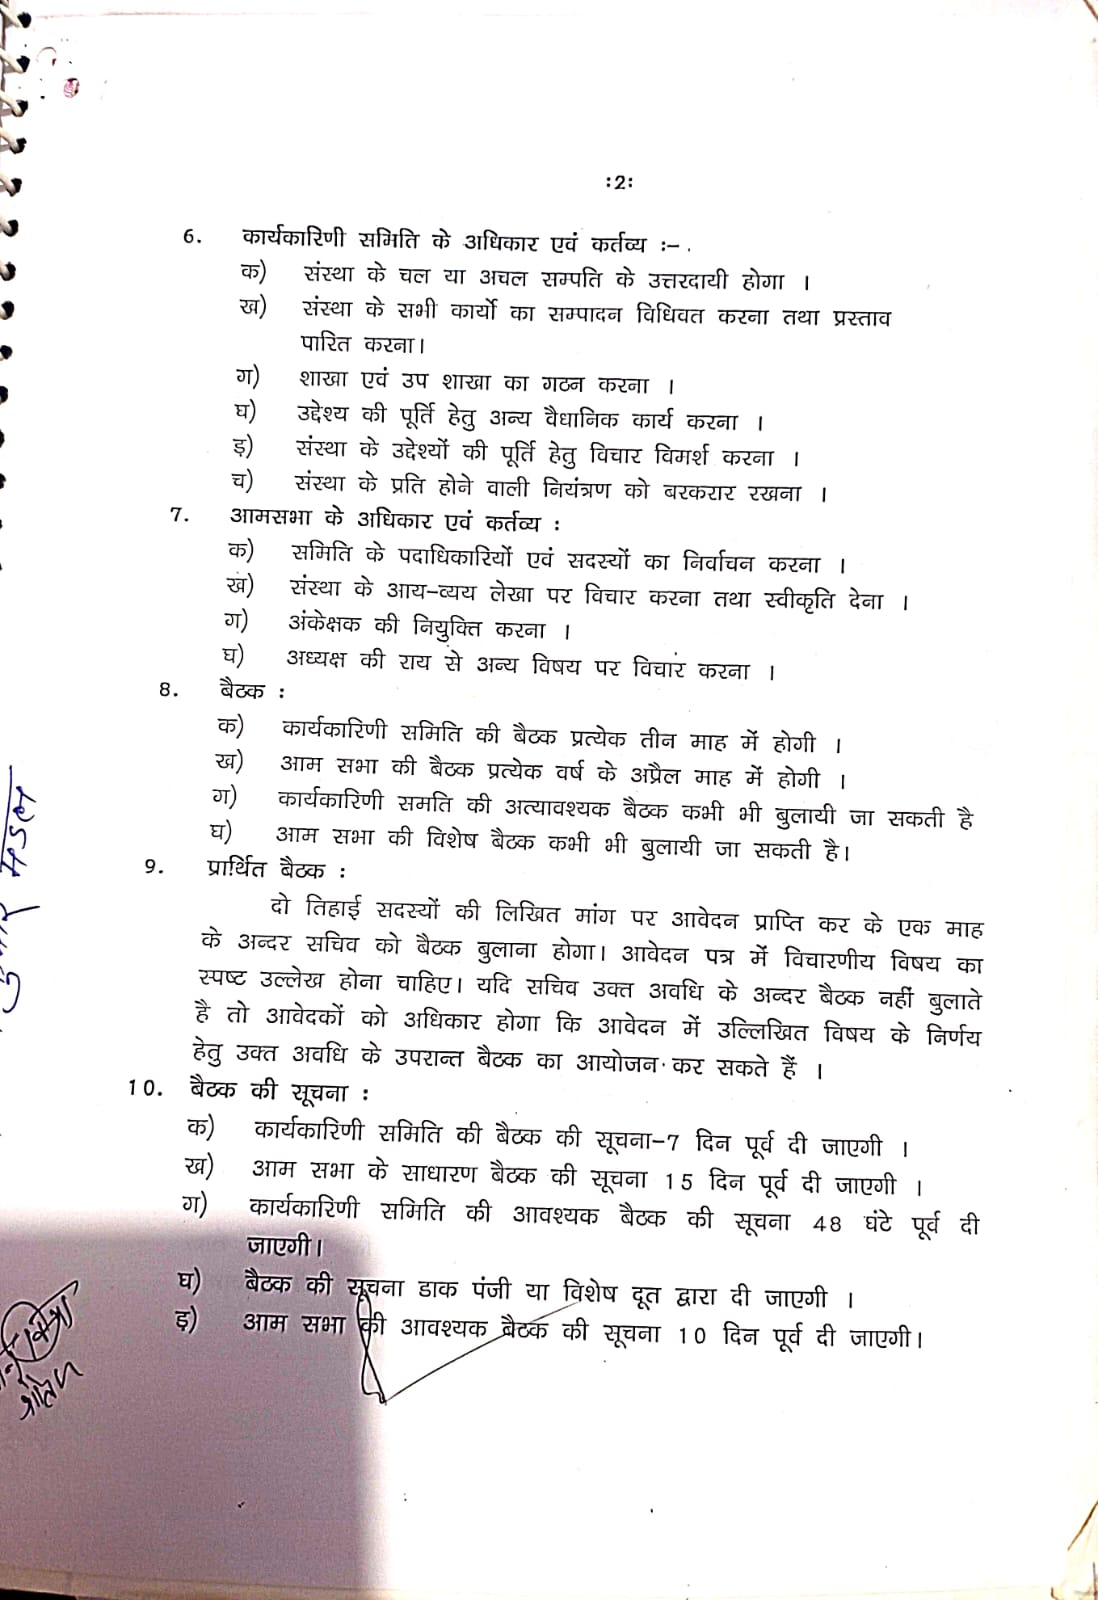 :2:
6. कार्यकारिणी समिति के अधिकार एवं कर्तव्य :-
क) संस्था के चल या अचल सम्पति के उत्तरदायी होगा ।
ख) संस्था के सभी कार्यो का सम्पादन विधिवत करना तथा प्रस्ताव
पारित करना।
ग) शाखा एवं उप शाखा का गठन करना ।
घ) उद्देश्य की पूर्ति हेतु अन्य वैधानिक कार्य करना ।
ड़) संस्था के उद्देश्यों की पूर्ति हेतु विचार विमर्श करना ।
च) संस्था के प्रति होने वाली नियंत्रण को बरकरार रखना ।
7. आमसभा के अधिकार एवं कर्तव्य :
क) समिति के पदाधिकारियों एवं सदस्यों का निर्वाचन करना ।
ख) संस्था के आय-व्यय लेखा पर विचार करना तथा स्वीकृति देना ।
ग) अंकेक्षक की नियुक्ति करना ।
घ) अध्यक्ष की राय से अन्य विषय पर विचार करना ।
8. बैठक :
क) कार्यकारिणी समिति की बैठक प्रत्येक तीन माह में होगी ।
ख) आम सभा की बैठक प्रत्येक वर्ष के अप्रैल माह में होगी ।
ग) कार्यकारिणी समति की अत्यावश्यक बैठक कभी भी बुलायी जा सकती है
घ) आम सभा की विशेष बैठक कभी भी बुलायी जा सकती है।
9. प्रार्थित बैठक :
दो तिहाई सदस्यों की लिखित मांग पर आवेदन प्राप्ति कर के एक माह
के अन्दर सचिव को बैठक बुलाना होगा। आवेदन पत्र में विचारणीय विषय का
स्पष्ट उल्लेख होना चाहिए। यदि सचिव उक्त अवधि के अन्दर बैठक नहीं बुलाते
है तो आवेदकों को अधिकार होगा कि आवेदन में उल्लिखित विषय के निर्णय
हेतु उक्त अवधि के उपरान्त बैठक का आयोजन कर सकते हैं ।
10. बैठक की सूचना :
क) कार्यकारिणी समिति की बैठक की सूचना-7 दिन पूर्व दी जाएगी ।
ख) आम सभा के साधारण बैठक की सूचना 15 दिन पूर्व दी जाएगी ।
ग) कार्यकारिणी समिति की आवश्यक बैठक की सूचना 48 घंटे पूर्व दी
जाएगी।
घ) बैठक की सूचना डाक पंजी या विशेष दूत द्वारा दी जाएगी ।
ड़) आम सभा की आवश्यक बैठक की सूचना 10 दिन पूर्व दी जाएगी।